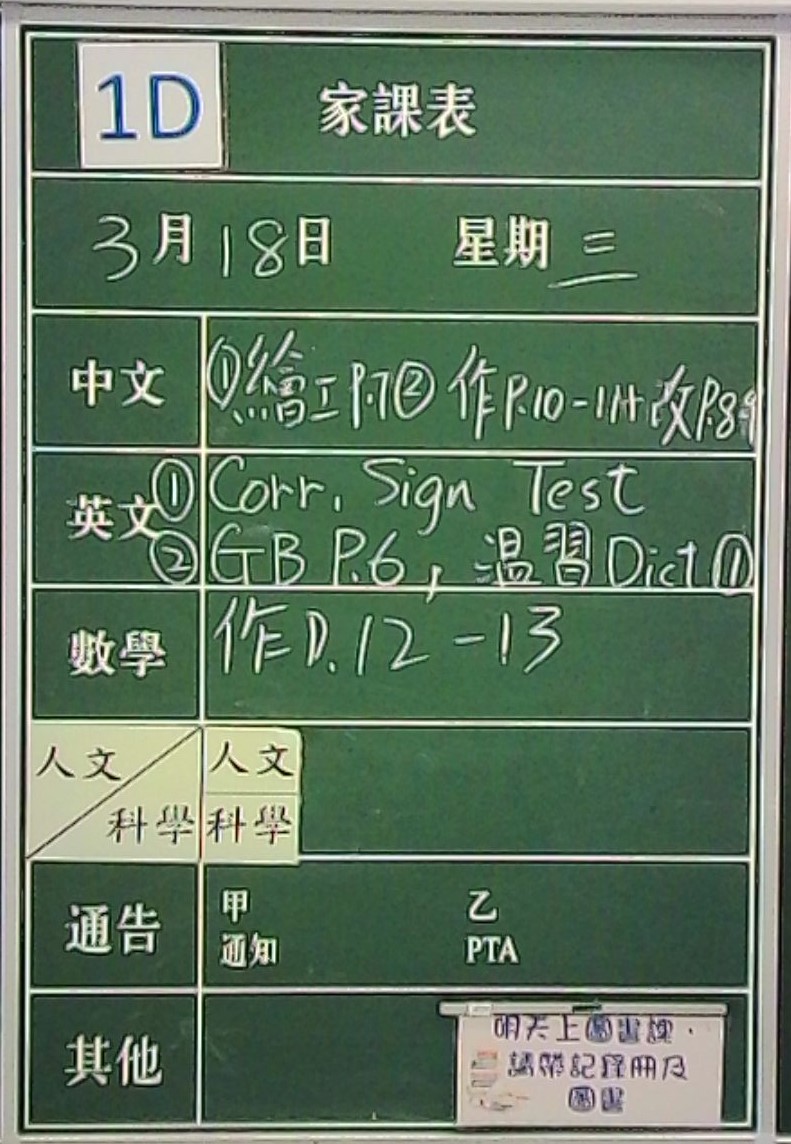 1D 家課表
3月18日 星期三
中文 ①繪工P.7② 作P.10-11+改P.8-9
英文 ① Corr. Sign Test
② GB P.6, 温習Dict ⑪
數學 作P.12-13
人文 人文
科學 科學
通告 甲 乙
通知 PTA
其他
明天上圖書課,
請帶記錄冊及
圖書